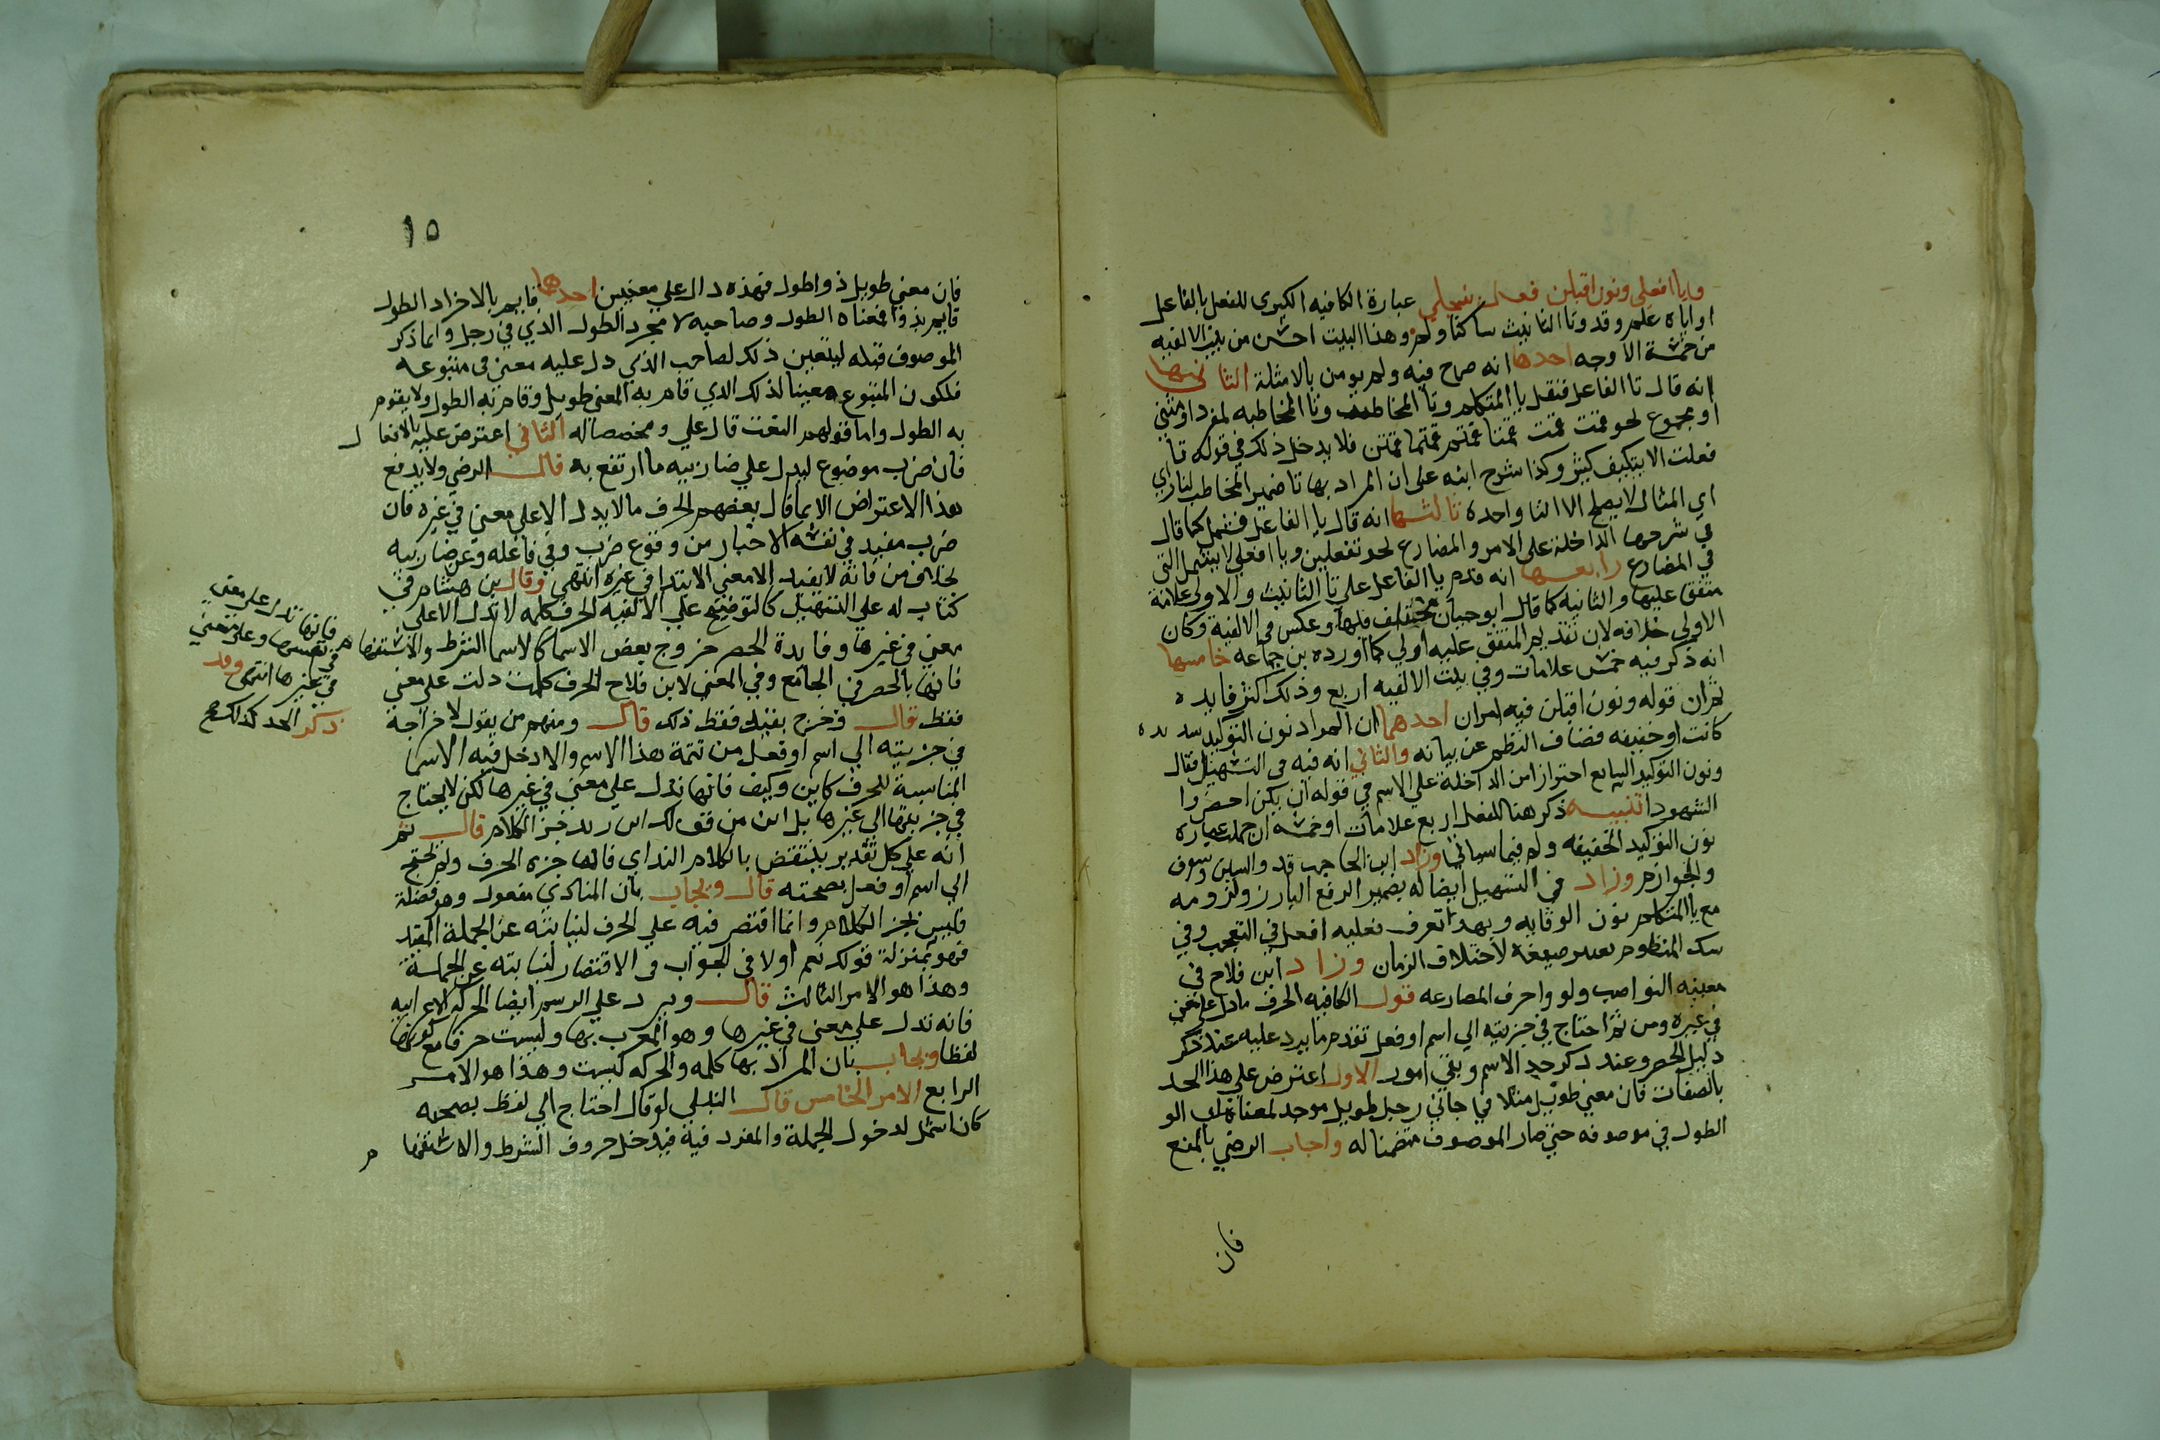 ويا افعلي ونون اقبلن فعل ينجلي عبارة الكافيه الكبري للفعل بالفاعل
او اياه علم وقد وتا التانيث ساكنا ولم وهذا البيت احسن من بيت الالفيه
من خمسة الاوجه احدها انه صرح فيه ولم يومن بالامثلة الثاني منها
انه قال تا الفاعل فنقل يا المتكلم وتا المخاطب وتا المخاطبه لمفرد او مثني
او مجموع نحو قمت قمت قمنا قمتم قمتما قمتن فلا يدخل ذلك في قوله تا
فعلت الا بتكيف كيثر وكذا شرح ابنه على ان المراد بها تا ضمير المخاطب
اي المثال لا يصلح الا لتا واحدة ثالثها انه قال يا الفاعل فشمل كما قال
في شرحها الداخلة على الامر والمضارع نحو تفعلين ويا افعلي لا يشمل التي
في المضارع رابعها انه قدم يا الفاعل علي تا التانيث والاولي علامة
متفق عليها والثانيه كما قال ابو حيان مختلف فلها وعكس في الالفية وكان
الاولي خلافه لان تقديم المتفق عليه اولي كما اورده بن جماعه خامسها
انه ذكر فيه خمس علامات وفي بيت الالفيه اربع وذلك اكثر فايده
ثم ان قوله ونون اقبلن فيه امران احدهما ان المراد نون التوكيد
كانت او خفيفه فضاف النظم عن بيانه والثاني انه فيه في التسهيل فقال
ونون التوكيد الشايع احترازا من الداخلة علي الاسم في قوله ان يكن احضروا
الشهودا تنبيه ذكر هنا للفعل اربع علامات او خمسه ان جملت عبارة
نون التوكيد الخفيفه ولم فيما سياتي وزاد ابن الحاجب قد والسين وسوف
والجوازم وزاد في التسهيل ايضا له بضمير الرفع البارز ولزومه
مع يا المتكلم نون الوقايه وبهذا تعرف فعليه افعل في التعجب وفي
المنظوم صيغه لاختلاف الزمان وزاد ابن فلاح في
مغنيه النواصب ولو واحرف المضارعه قول الكافيه الحرف ما دل على معني
في غيره ومن ثم احتاج في جزيته الي اسم او فعل تقدم ما يرد عليه عند ذكر
دليل الحصر وعند ذكر حد الاسم وبقي امور الاول اعترض علي هذا الحد
بالصفات فان معني طويل مثلا في جاني رجل طويل موجد لمعناه الو
الطول في موصوفه حتي صار الموصوف متضمنا له واجاب الرضي بالمنع
فان
١٥
فان معني طويل ذو اطول فهذه دال علي معنيين احدهما قايم بالاخر اذ الطول
قايم بذو ا فمعناه الطول وصاحبه لا مجرد الطول الذي في رجل وانما ذكر
الموصوف قبله ليتعين ذلك لصاحب الذي دل عليه معني في متبوعه
فلكون المتبوع معينا لذلك الذي قام به المعني طويل وقام به الطول ولا يقوم
به الطول واما قولهم النعت قال علي ومخصصا له الثاني اعترض عليه بالافعا ل
فان ضرب موضوع ليدل علي ضاربيه ما ارتفع به قال الرضي ولا يدفع
هذا الاعتراض الا بما قال بعضهم الحرف ما لا يدل الا علي معني في غيره فان
ضرب مفيد في نفسه الاخبار من وقوع ضرب وفي فاعله وعن ضاربيه
بخلاف من فانه لا يفيد الا معني الابتدا في غيره انتهي وقال بن هشام في
كتاب له علي التسهيل كالتوضيح علي الالفيه الحرف كلمه لا تدل الا على
معني في غيرها وفايدة الحصر خروج بعض الاسما كالاسما الشرط والاستفها م
فانها تدل علي معني
في نفسها وعلى معني
في غيرها انتهى وقد
ذكر الحد كذلك صح
فانها بالحصر في الجامع وفي المغني لابن فلاح الحرف كلمة دلت على معني
فقط قال فخرج بقيد فقط ذلك قال ومنهم من يقول لاخراجه
في جزيته الي اسم او فعل من تتمة هذا الاسم والا دخل فيه الاسما
المناسبة للحرف كاين وكيف فانها تدل علي معني في غيرها لكن لا يحتاج
في جزيتها الي غيرها بل اين من قولك اين زيد جز الكلام قال ثم
انه علي كل تقدير ينتقض بالكلام الندا اي فانها جزه الحرف ولم يحتج
الي اسم او فعل بصحته قال ويجاب بان المنادي مفعول وهو فضلة
فليس بجز الكلام وانما اقتصر فيه علي الحرف لنيابته عن الجملة المقد
فهو بمنزلة قولك نعم او لا في الجواب في الاقتصار لنيابته عن الجملة
وهذا هو الامر الثالث قال ويرد علي الرسم ايضا الحركه الاعرابيه
فانه تدل علي معني في غيرها وهو المعرب بها وليست حرفا مع كونها
لفظا ويجاب بان المراد بها كلمه والحركه ليست وهذا هو الامر
الرابع الامر الخامس قال النيلي لو قال احتاج الي لفظ بصحبه
كان اشمل لدخول الجملة والمفرد فيه فيدخل حروف الشرط والاستفها م